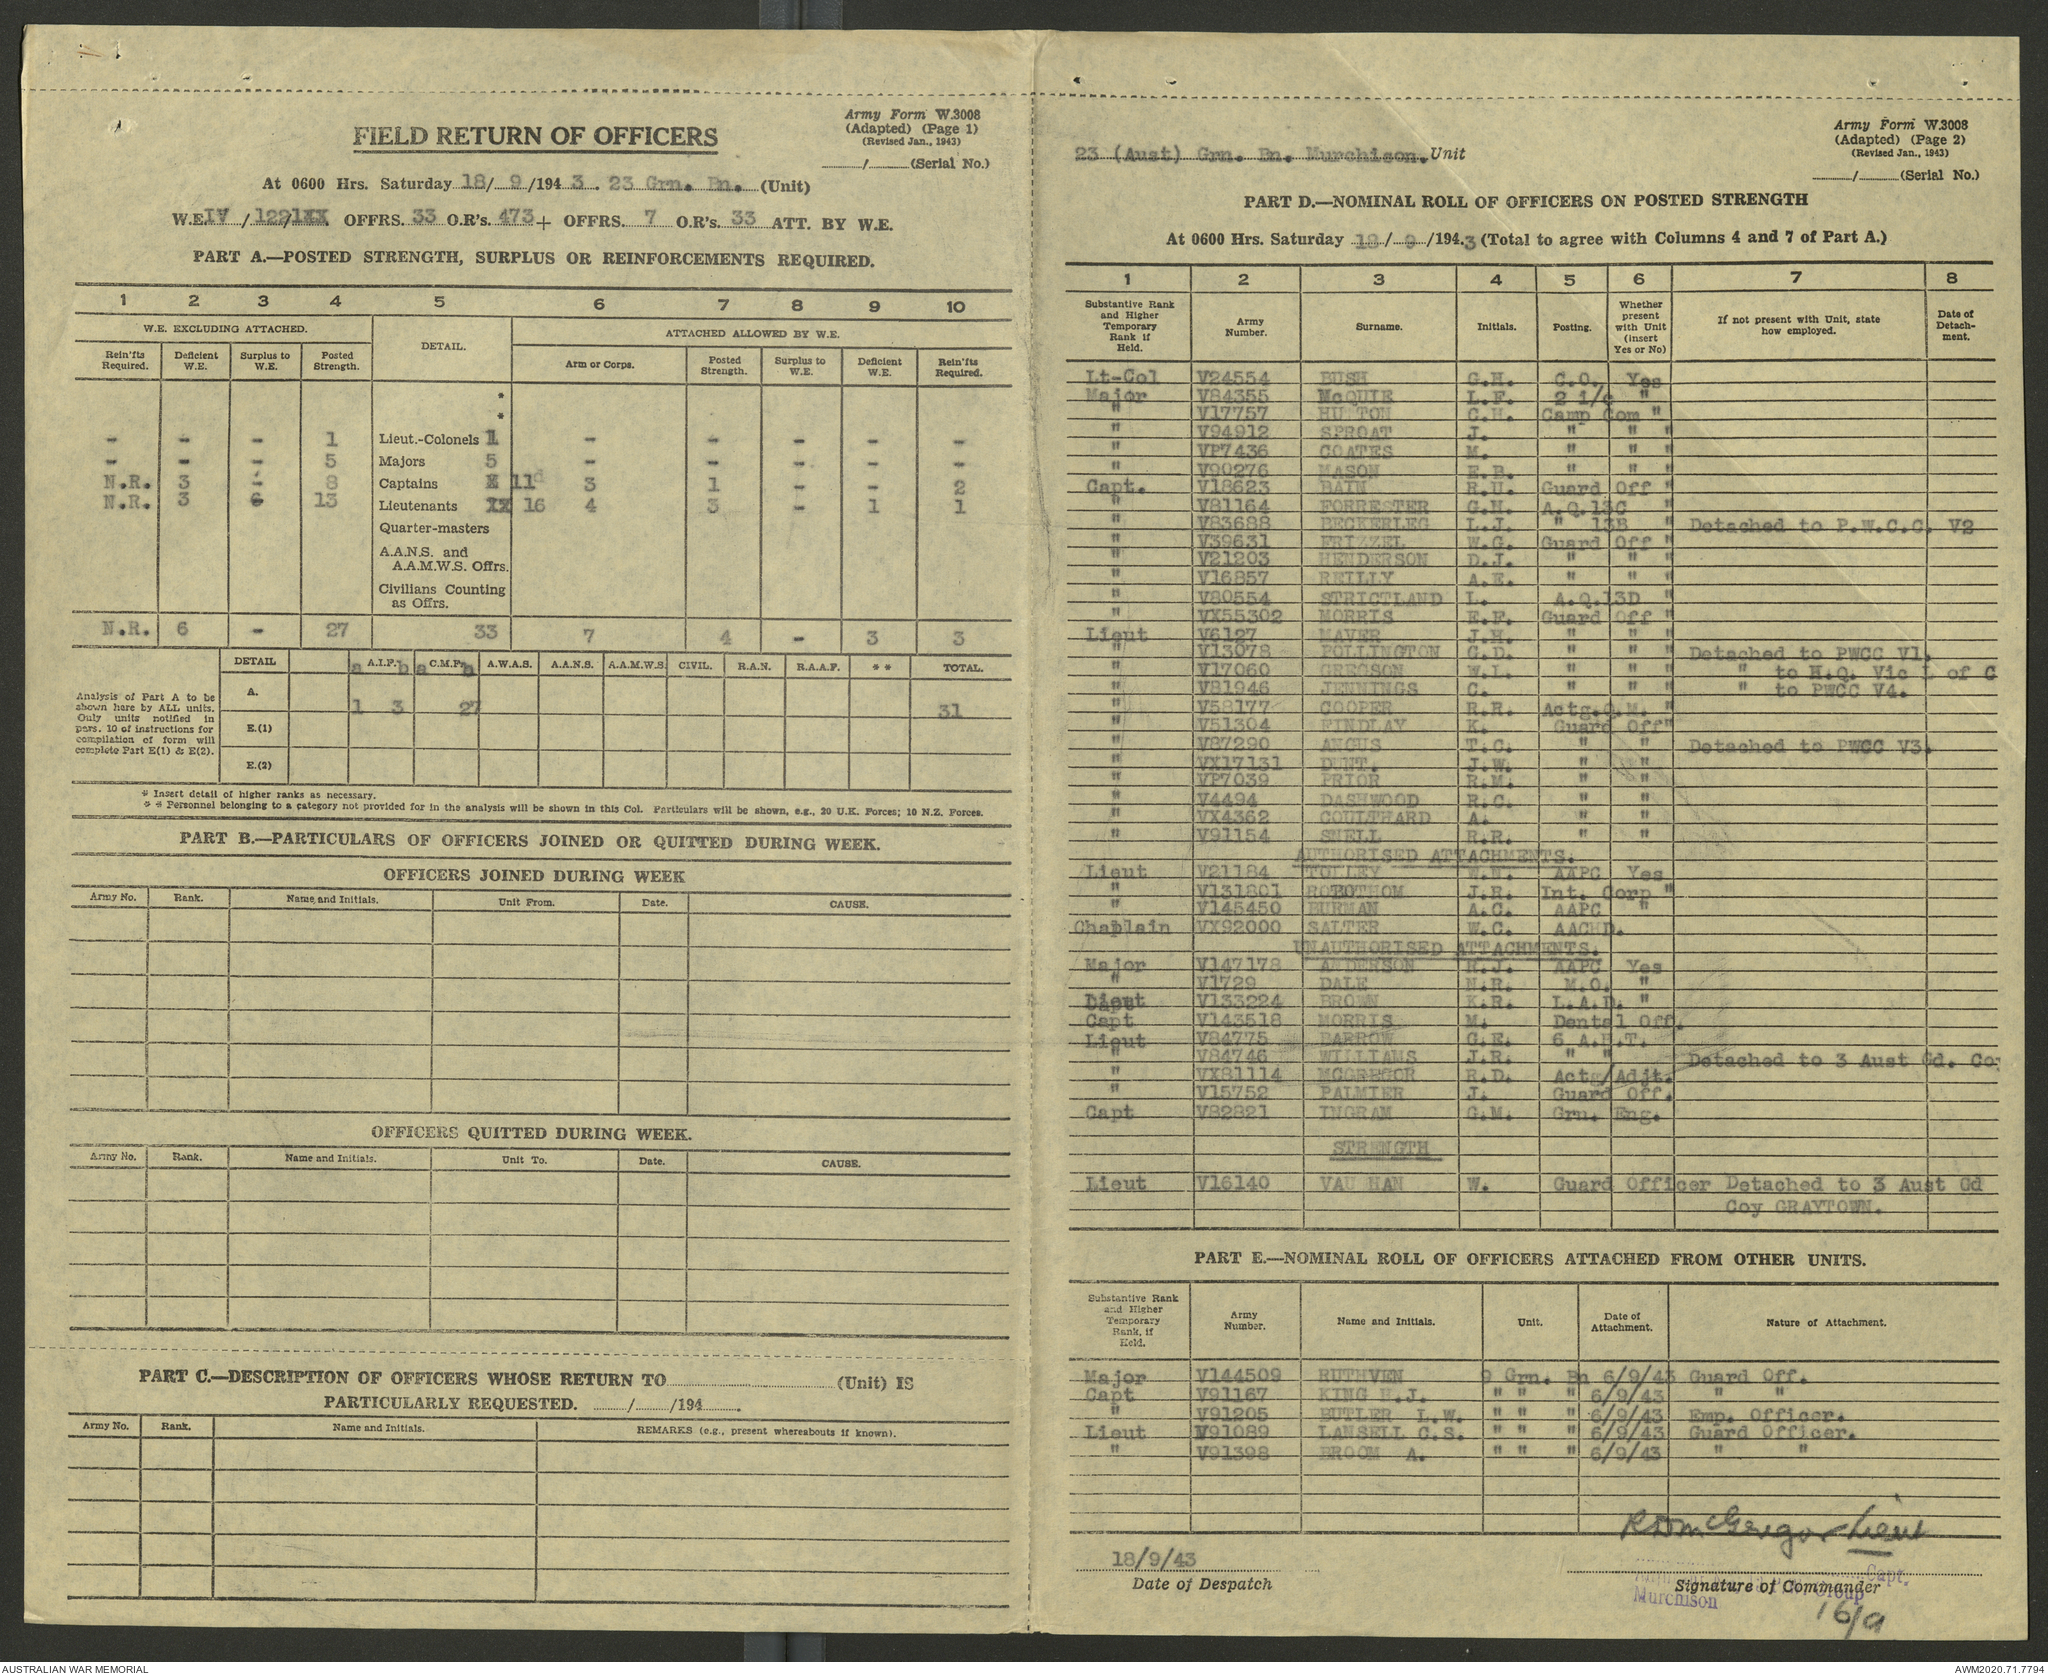 Army Form W.3008
(Adapted) (Page 1)
(Revised Jan., 1943)
FIELD RETURN OF OFFICERS
/ (Serial No.)
At 0600 Hrs. Saturday 18/ 9 /194 3 . 23 Grn. Bn. (Unit)
W.E. IV / 122/1XX OFFRS. 33 O.R's. 473 + OFFRS. 7 O.R's. 33 ATT. BY W.E.
PART A.—POSTED STRENGTH, SURPLUS OR REINFORCEMENTS REQUIRED.
1 2 3 4 5 6 7 8 9 10
W.E. EXCLUDING ATTACHED. DETAIL. ATTACHED ALLOWED BY W.E.
Rein'fts Required. Deficient W.E. Surplus to W.E. Posted Strength. Arm or Corps. Posted Strength. Surplus to W.E. Deficient W.E. Rein'fts Required.
*
*
- - - 1 Lieut.-Colonels 1 - - - - -
- - - 5 Majors 5 - - - - -
N.R. 3 - 8 Captains 11 3 1 - - 2
N.R. 3 - 13 Lieutenants 16 4 3 - 1 1
Quarter-masters
A.A.N.S. and
A.A.M.W.S. Offrs.
Civilians Counting
as Offrs.
N.R. 6 - 27 33 7 4 - 3 3
DETAIL a A.I.F. b a C.M.F. b A.W.A.S. A.A.N.S. A.A.M.W.S. CIVIL. R.A.N. R.A.A.F. ** TOTAL.
Analysis of Part A to be shown here by ALL units. Only units notified in para. 10 of instructions for compilation of form will complete Part E(1) & E(2).
A. 1 3 27 31
E.(1)
E.(2)
* Insert detail of higher ranks as necessary.
* * Personnel belonging to a category not provided for in the analysis will be shown in this Col. Particulars will be shown, e.g., 20 U.K. Forces; 10 N.Z. Forces.
PART B.—PARTICULARS OF OFFICERS JOINED OR QUITTED DURING WEEK.
OFFICERS JOINED DURING WEEK
Army No. Rank. Name and Initials. Unit From. Date. CAUSE.
OFFICERS QUITTED DURING WEEK.
Army No. Rank. Name and Initials. Unit To. Date. CAUSE.
PART C.—DESCRIPTION OF OFFICERS WHOSE RETURN TO (Unit) IS
PARTICULARLY REQUESTED. / /194 .
Army No. Rank. Name and Initials. REMARKS (e.g., present whereabouts if known).
Army Form W.3008
(Adapted) (Page 2)
(Revised Jan., 1943)
/ (Serial No.)
23 (Aust) Grn. Bn. Murchison. Unit
PART D.—NOMINAL ROLL OF OFFICERS ON POSTED STRENGTH
At 0600 Hrs. Saturday 18/ 9 /194.3 (Total to agree with Columns 4 and 7 of Part A.)
1 2 3 4 5 6 7 8
Substantive Rank and Higher Temporary Rank if Held. Army Number. Surname. Initials. Posting. Whether present with Unit (insert Yes or No) If not present with Unit, state how employed. Date of Detachment.
Lt-Col V24554 BUSH G.H. C.O. Yes
Major V84355 McQUIE L.F. 2 i/c "
" V17757 HUTTON C.H. Camp Com "
" V94912 SPROAT J. " " "
" VP7436 COATES M. " " "
" V90276 MASON E.B. " " "
Capt. V18623 BAIN R.U. Guard Off "
" V81164 FORRESTER G.H. A.Q.13C "
" V83688 BECKERLEG L.J. " 13B " Detached to P.W.C.C. V2
" V39631 FRIZZEL W.G. Guard Off "
" V21203 HENDERSON D.J. " " "
" V16857 REILLY A.E. " " "
" V80554 STRICTLAND L. A.Q.13D "
" VX55302 MORRIS E.F. Guard Off "
Lieut V6127 MAVER J.H. " " "
" V13078 POLLINGTON G.D. " " " Detached to PWCC V1.
" V17060 GREGSON W.L. " " " " to H.Q. Vic L of C
" V81946 JENNINGS C. " " " " to PWCC V4.
" V58177 COOPER R.R. Actg.Q.M. "
" V51304 FINDLAY K. Guard Off"
" V87290 ANGUS T.C. " " Detached to PWCC V3.
" VX17131 DUNT. J.W. " "
" VP7039 PRIOR R.M. " "
" V4494 DASHWOOD R.C. " "
" VX4362 COULTHARD A. " "
" V91154 SNELL R.R. " "
AUTHORISED ATTACHMENTS.
Lieut V21184 TOLLEY W.N. AAPC Yes
" V131801 ROBOTHOM J.R. Int. Corp "
" V145450 BURMAN A.C. AAPC "
Chaplain VX92000 SALTER W.C. AACHD.
UNAUTHORISED ATTACHMENTS.
Major V147178 ANDERSON R.J. AAPC Yes
" V1729 DALE N.R. M.O. "
Lieut V133224 BROWN K.R. L.A.D. "
Capt V143518 MORRIS M. Dental Off.
Lieut V84775 BARROW G.E. 6 A.P.T.
" V84746 WILLIAMS J.R. " " Detached to 3 Aust Gd. Co
" VX81114 MCGREGOR R.D. Actg/Adjt.
" V15752 PALMIER J. Guard Off.
Capt V82821 INGRAM G.M. Grn. Eng.
STRENGTH
Lieut V16140 VAUHAN W. Guard Officer Detached to 3 Aust Gd
Coy GRAYTOWN.
PART E.—NOMINAL ROLL OF OFFICERS ATTACHED FROM OTHER UNITS.
Substantive Rank and Higher Temporary Rank, if Held. Army Number. Name and Initials. Unit. Date of Attachment. Nature of Attachment.
Major V144509 RUTHVEN 9 Grn. Bn 6/9/43 Guard Off.
Capt V91167 KING H.J. " " " 6/9/43 " "
" V91205 BUTLER L.W. " " " 6/9/43 Emp. Officer.
Lieut V91089 LANSELL G.S. " " " 6/9/43 Guard Officer.
" V91398 BROOM A. " " " 6/9/43 " "
RDMcGregor Lieut
18/9/43
Date of Despatch
Capt.
Signature of Commander
Group
Murchison
16/9
AUSTRALIAN WAR MEMORIAL
AWM2020.71.7794